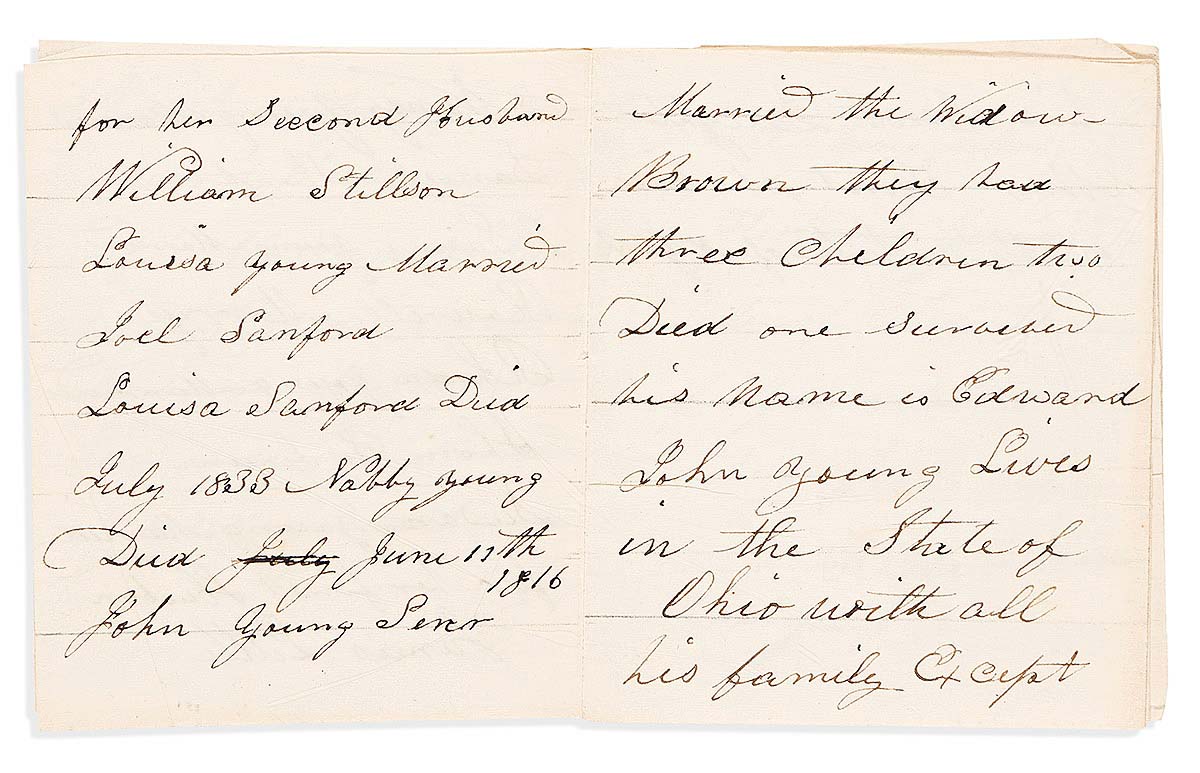 for her Second Husband
William Stillson
Louisa young Married
Joel Sanford
Louisa Sanford Died
July 1833 Nabby young
Died July June 11th
1816
John Young Senr
Married the Widow
Brown they had
three Children two
Died one survived
his Name is Edward
John Young Lives
in the State of
Ohio with all
his family Except